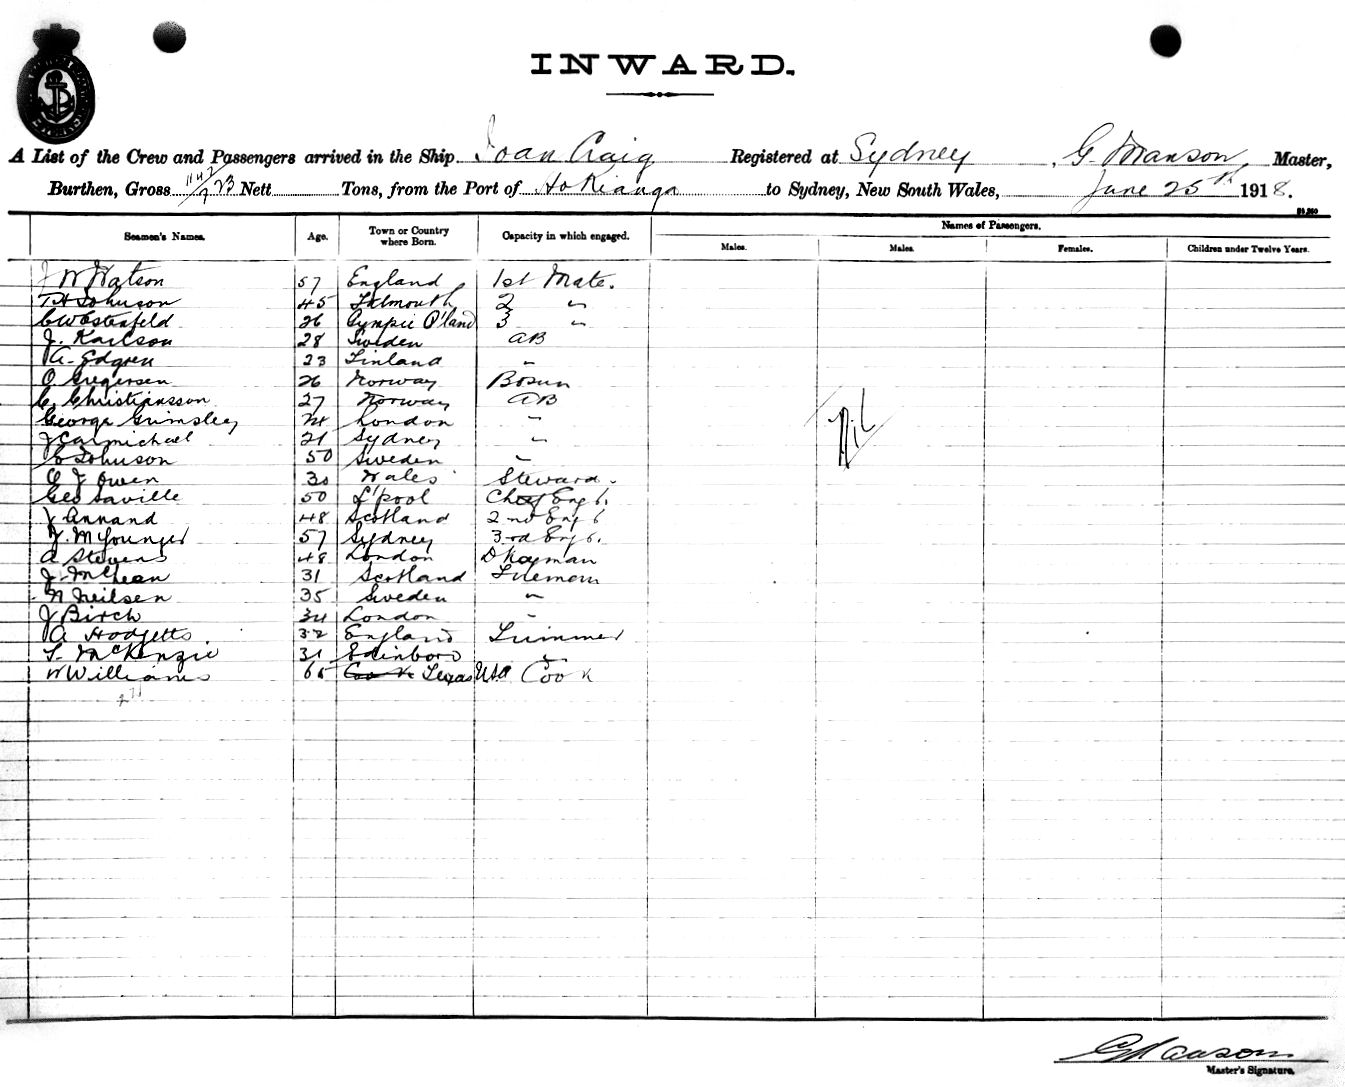 INWARD.
A List of the Crew and Passengers arrived in the Ship Joan Craig Registered at Sydney, G Manson, Master,
Burthen, Gross Nett Tons, from the Port of Hokianga to Sydney, New South Wales, June 25th 1918.
Seamen's Names. Age. Town or Country where Born. Capacity in which engaged. Names of Passengers.
Males. Males. Females. Children under Twelve Years.
J W Watson 57 England 1st Mate.
T H Johnson 45 Falmouth 2 "
C Westenfeld 26 Gympie Q'land 3 "
J. Karlson 28 Sweden AB
A. Edgren 23 Finland "
O Gregersen 26 Norway Bosun
C. Christiansson 27 Norway AB
George Grimsley 24 London "
J Carmichael 21 Sydney "
C Johnson 50 Sweden "
J Owen 30 Wales Steward.
Geo Saville 50 L'pool Chief Eng
J Annand 48 Scotland 2nd Eng
J. M Younger 57 Sydney 3rd Eng
A Stevens 48 London Dkeyman
J. McLean 31 Scotland Fireman
N Neilsen 35 Sweden "
J Birch 34 London "
A Hodgetts 32 England Trimmer
T. McKenzie 31 Edinboro "
W Williams 65 Texas USA Cook
Nil
G Manson
Master's Signature.